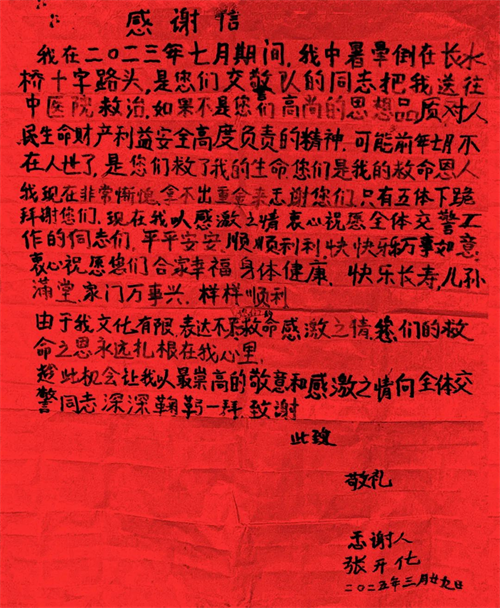 感谢信
我在二〇二三年七月期间,我中署晕倒在长水
桥十字路头,是您们交警队的同志把我送往
中医院救治,如果不是您们高尚的思想品质对人
民生命财产利益安全高度负责的精神,可能前年七月不
在人世了,是您们救了我的生命您们是我的救命恩人
我现在非常惭愧,拿不出重金来谢您们,只有五体下跪
拜谢您们,现在我以感激之情衷心祝愿全体交警工
作的同志们,平平安安顺顺利利快快乐乐万事如意,
衷心祝愿您们合家幸福身体健康,快乐长寿,儿孙
满堂,家门万事兴,样样顺利
由于我文化有限,表达不救命感激之情,您们的救
命之恩永远扎根在我心里,
趁此机会让我以最崇高的敬意和感激之情向全体交
警同志深深鞠躬一拜,致谢
此致
敬礼
谢人
张开化
二〇二五年三月廿九日